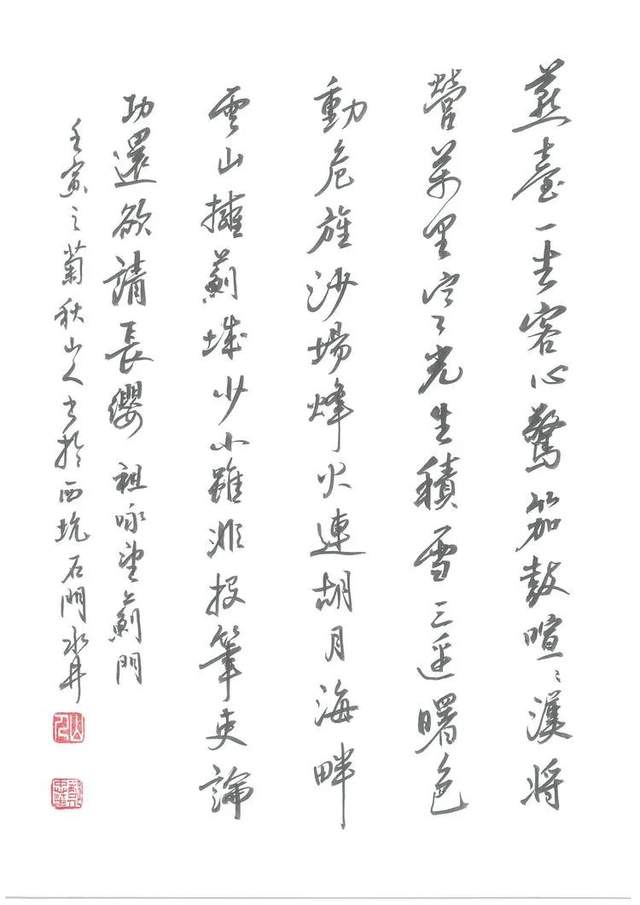 燕臺一去客心驚笳鼓喧〻漢將
營萬里寒光生積雪三邊曙色
動危旌沙場烽火連胡月海畔
雲山擁薊城少小雖非投筆吏論
功還欲請長纓 祖咏望薊門
壬寅之菊秋山人書於西坑石門水井
山人